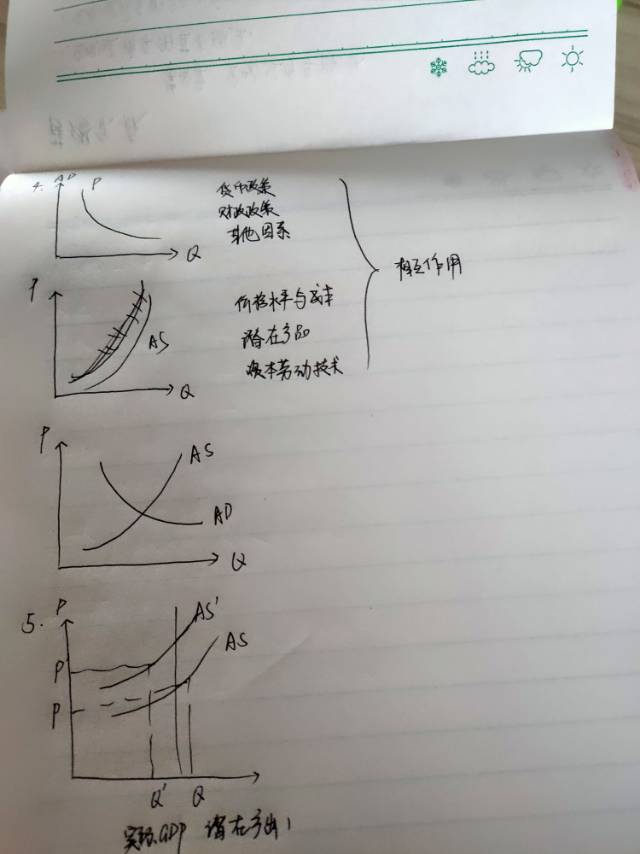 4. AD P
货币政策
财政政策
其他因素
Q
相互作用
P
价格水平与成本
潜在产品
AS
资本劳动技术
Q
P
AS
AD
Q
5. P
AS'
AS
P
P
Q' Q
实际GDP 潜在产出